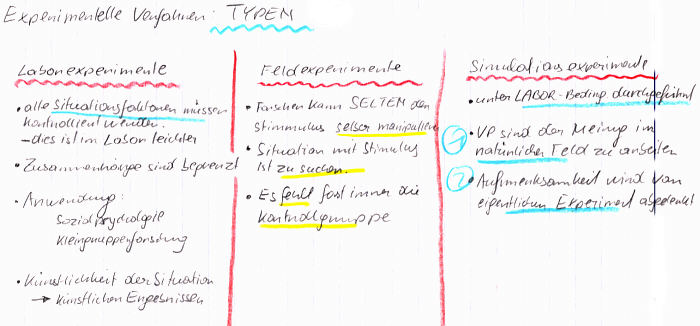 Experimentelle Verfahren: TYPEN
Laborexperimente
• alle Situationsfaktoren müssen
kontrolliert werden.
– dies ist im Labor leichter
• Zusammenhänge sind begrenzt
• Anwendung:
Sozialpsychologie
Kleingruppenforschung
• Künstlichkeit der Situation
→ künstlichen Ergebnissen
Feldexperimente
• Forscher kann SELTEN den
Stimulus selber manipulieren
• Situation mit Stimulus
ist zu suchen.
• Es fehlt fast immer die
Kontrollgruppe
Simulationsexperimente
• unter LABOR-Beding. durchgeführt
1 • VP sind der Meinung im
natürlichen Feld zu arbeiten
2 • Aufmerksamkeit wird vom
eigentlichen Experiment abgelenkt